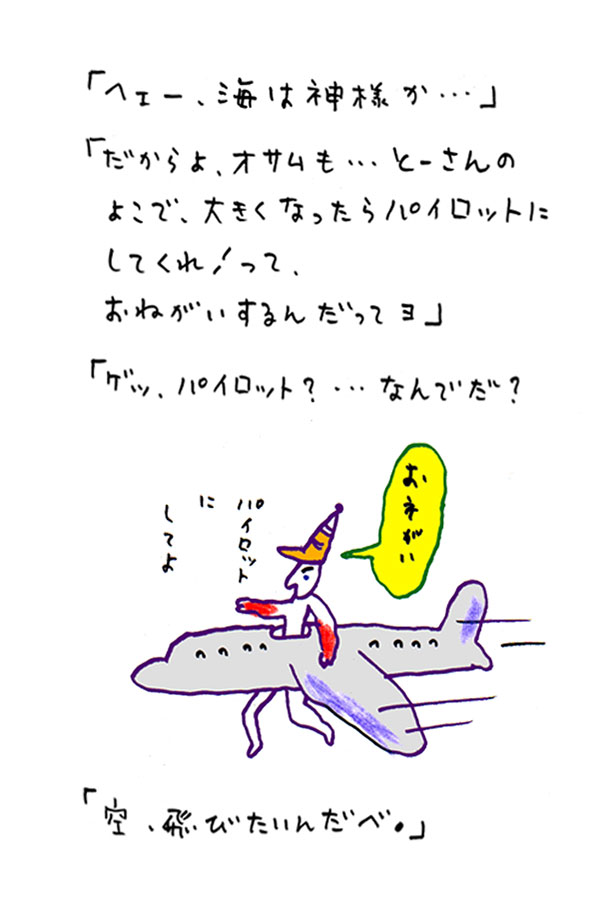 「ヘェー、海は神様か…」
「だからよ、オサムも…とーさんの
よこで、大きくなったらパイロットに
してくれ!って、
おねがいするんだってヨ」
「ゲッ、パイロット?…なんでだ?
おネがい
パイロット
に
してよ
「空、飛びたいんだべ。」